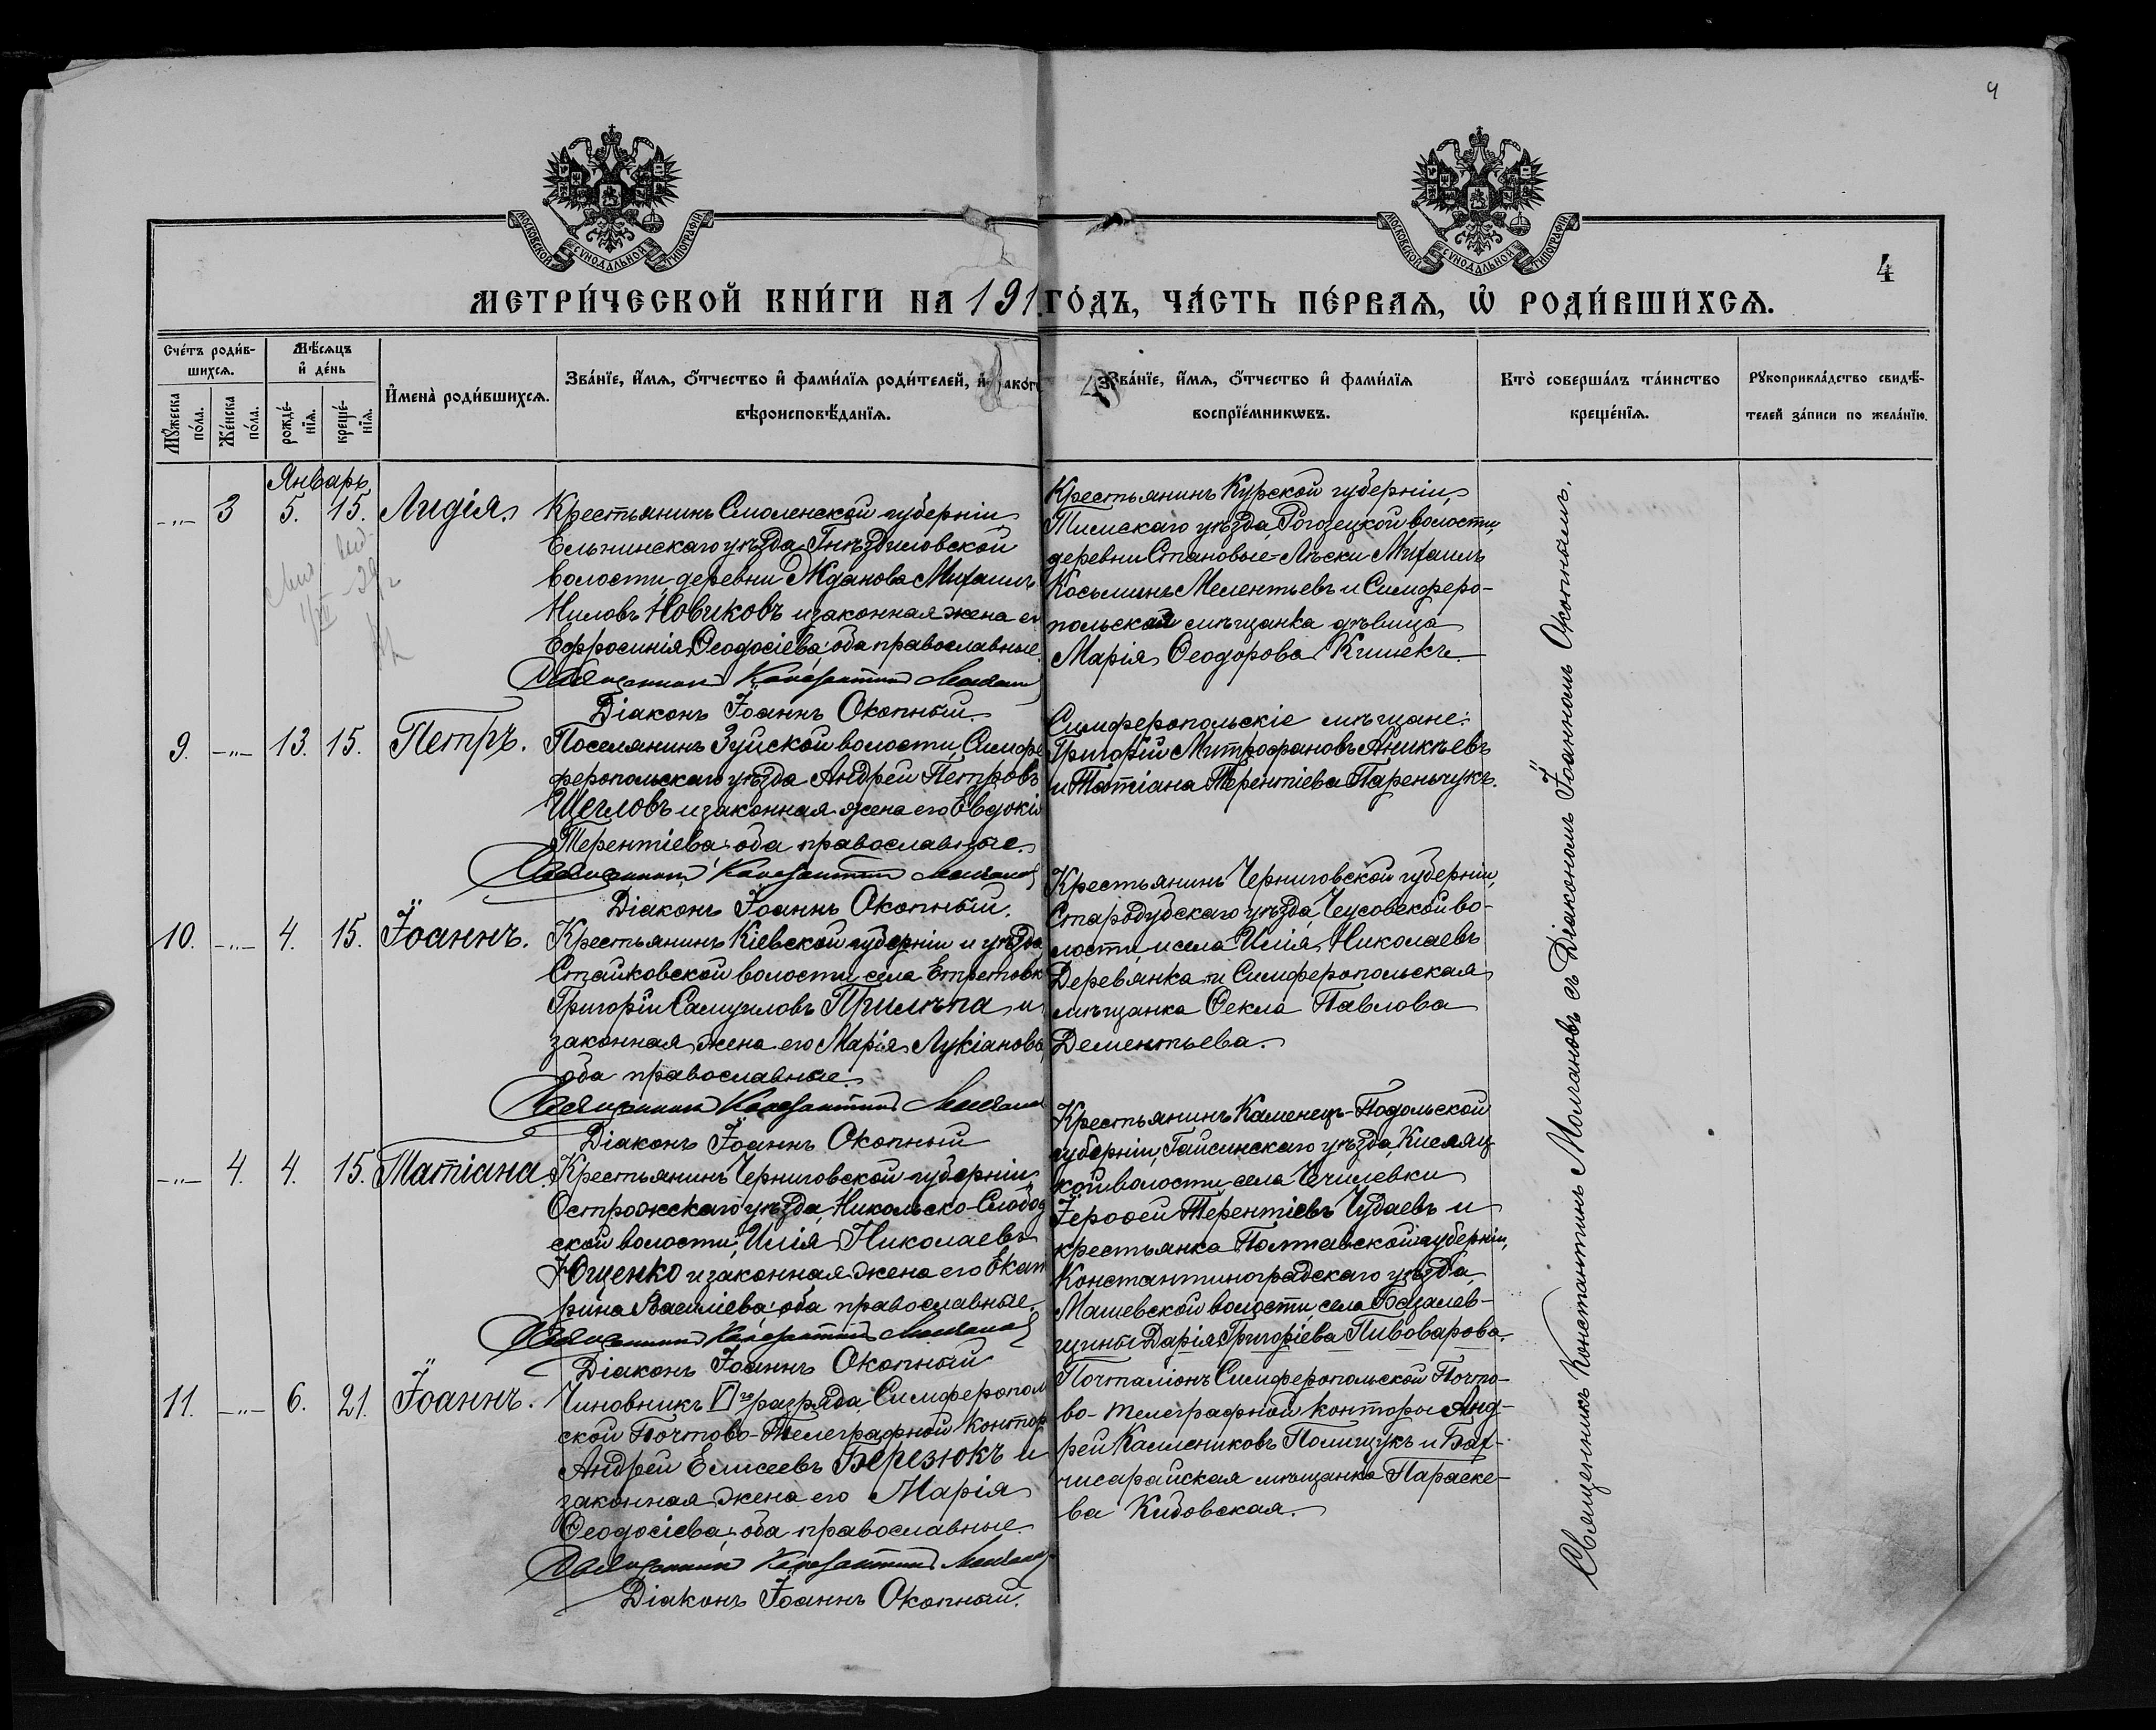 4
МОСКОВСКОЙ СѴНОДАЛЬНОЙ ТИПОГРАФІИ
МОСКОВСКОЙ СѴНОДАЛЬНОЙ ТИПОГРАФІИ
4
МЕТРИ́ЧЕСКОЙ КНИ́ГИ НА 191 ГО́ДЪ, ЧА́СТЬ ПЕ́РВАѦ, Ѡ҆ РОДИ́ВШИХСѦ.
Сче́тъ роди́в-
шихсѧ.
Мꙋ́жеска по́ла.
Же́нска по́ла.
Мѣ́сѧцъ и҆ де́нь
рожде́-нїѧ.
креще́-нїѧ.
И҆мена̀ роди́вшихсѧ.
Зва́нїе, и҆́мѧ, ѻ҆́тчество и҆ фами́лїѧ роди́телей, и҆ како́гѡ
вѣроисповѣ́данїѧ.
Зва́нїе, и҆́мѧ, ѻ҆́тчество и҆ фами́лїѧ
воспрїе́мникѡвъ.
Кто̀ соверша́лъ та́инство
креще́нїѧ.
Рꙋкоприкла́дство свидѣ́-
телей за́писи по жела́нїю.
Январь
-„- 3 5. 15. Лидія.
Крестьянинъ Смоленской губерніи,
Ельнинскаго уѣзда, Гнѣздиловской
волости, деревни Жданова Михаилъ
Ниловъ Новиковъ и законная жена ег
Ефросинія Ѳеодосіева, оба православные.
Священникъ Константинъ Молчановъ
Діаконъ Іоаннъ Окопный.
Крестьянинъ Курской губерніи,
Тимскаго уѣзда, Рогозецкой волости,
деревни Становые-Лѣски Михаилъ
Косьминъ Мелентьевъ и Симферо-
польская мѣщанка дѣвица
Марія Ѳеодорова Кишекъ.
9. -„- 13. 15. Петръ.
Поселянинъ Зуйской волости, Симфе
феропольскаго уѣзда Андрей Петровъ
Щегловъ и законная жена его Евдокія
Терентіева, оба православные.
Священникъ Константинъ Молчановъ
Діаконъ Іоаннъ Окопный.
Симферопольскіе мѣщане:
Григорій Митрофановъ Аникѣевъ
и Татіана Терентіева Пареньчукъ.
10. -„- 4. 15. Іоаннъ.
Крестьянинъ Кіевской губерніи и уѣзда,
Стайковской волости, села
Григорій Самуиловъ Прилѣпа и
законная жена его Марія Лукіанова,
оба православные.
Священникъ Константинъ Молчановъ
Діаконъ Іоаннъ Окопный
Крестьянинъ Черниговской губерніи,
Стародубскаго уѣзда, Чеусовской во-
лости и села Илія Николаевъ
Деревянка и Симферопольская
мѣщанка Ѳекла Павлова
Дементьева.
-„- 4. 4. 15. Татіана.
Крестьянинъ Черниговской губерніи,
Острожскаго уѣзда, Никольско-Слобод
ской волости, Илія Николаевъ
Ющенко и законная жена его Екат
рина Василіева, оба православные.
Священникъ Константинъ Молчановъ
Діаконъ Іоаннъ Окопный
Крестьянинъ Каменецъ-Подольской
губерніи, Гайсинскаго уѣзда, Кисляц-
кой волости села Чечилевки
Іероѳей Терентіевъ Чудаевъ и
крестьянка Полтавской губерніи,
Константиноградскаго уѣзда,
Машевской волости, села Базилев-
щины Дарія Григоріева Пивоварова.
11. -„- 6. 21. Іоаннъ.
Чиновникъ VIго разряда, Симферопол
ской Почтово-Телеграфной Контор
Андрей Елисеевъ Березюкъ и
законная жена его Марія
Ѳеодосіева, оба православные.
Священникъ Константинъ Молчановъ
Діаконъ Іоаннъ Окопный.
Почталіонъ Симферопольской Почто-
во-телеграфной конторы Анд-
рей Каллениковъ Полищукъ и Бах-
чисарайская мѣщанка Параске-
ва Кидовская.
Священникъ Константинъ Молчановъ съ Діакономъ Іоанномъ Окопнымъ.